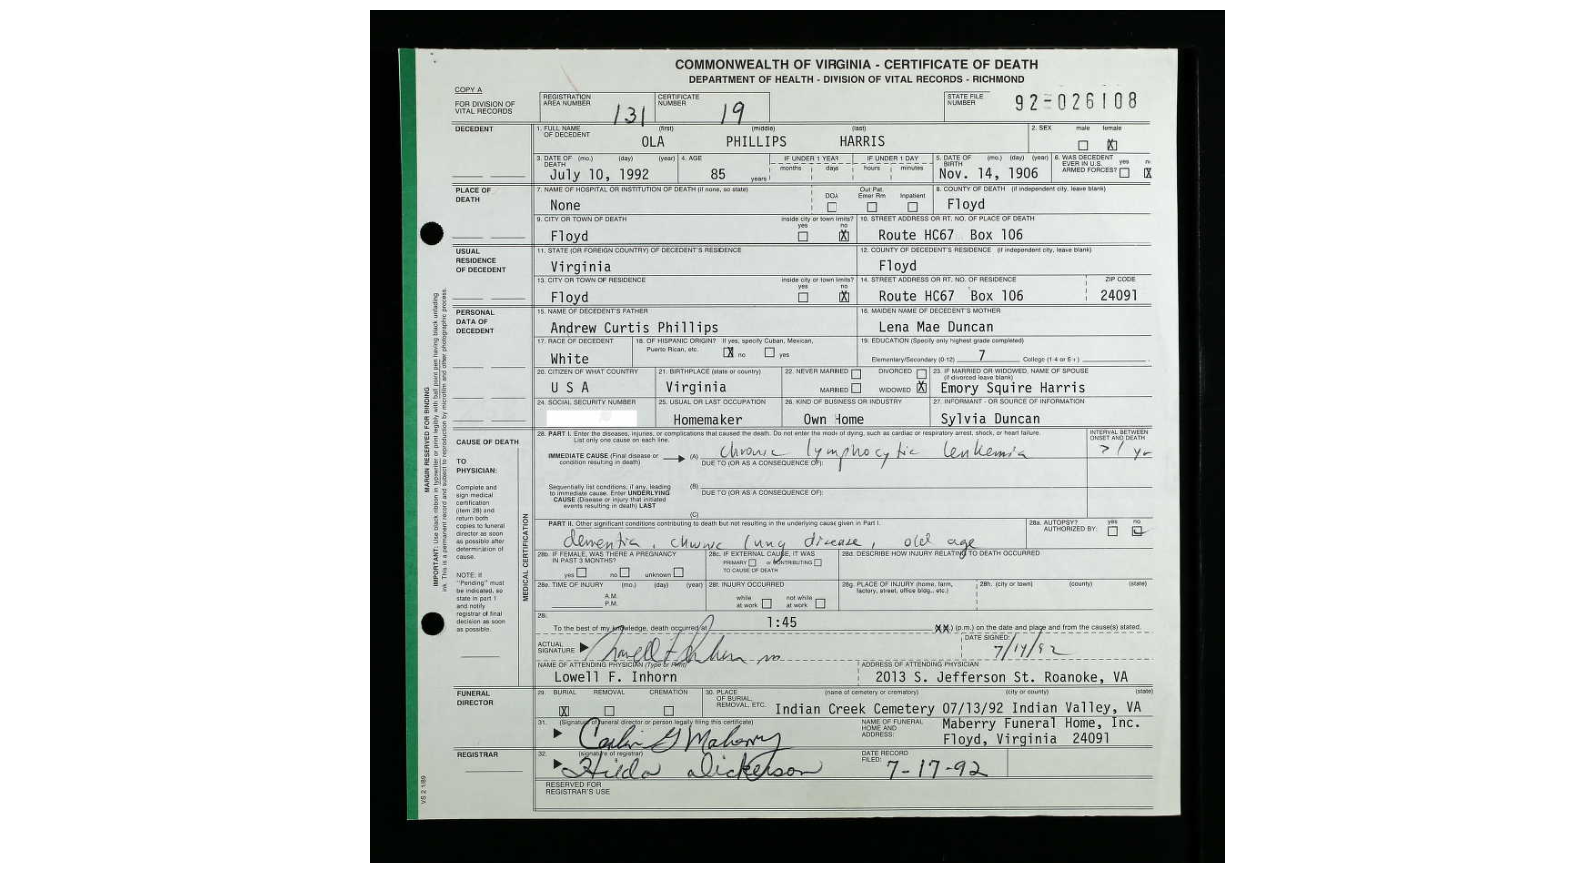 COMMONWEALTH OF VIRGINIA - CERTIFICATE OF DEATH
DEPARTMENT OF HEALTH - DIVISION OF VITAL RECORDS - RICHMOND
COPY A
FOR DIVISION OF VITAL RECORDS
REGISTRATION AREA NUMBER 131
CERTIFICATE NUMBER 19
STATE FILE NUMBER 92-026108
DECEDENT
1. FULL NAME OF DECEDENT (first) (middle) (last)
OLA PHILLIPS HARRIS
2. SEX male female X
3. DATE OF DEATH (mo.) (day) (year) July 10, 1992
4. AGE 85 years
IF UNDER 1 YEAR months days
IF UNDER 1 DAY hours minutes
5. DATE OF BIRTH (mo.) (day) (year) Nov. 14, 1906
6. WAS DECEDENT EVER IN U.S. ARMED FORCES? yes n X
PLACE OF DEATH
7. NAME OF HOSPITAL OR INSTITUTION OF DEATH (if none, so state)
None
DOA Out Pat. Emer Rm Inpatient
8. COUNTY OF DEATH (if independent city, leave blank)
Floyd
9. CITY OR TOWN OF DEATH inside city or town limits? yes no X
Floyd
10. STREET ADDRESS OR RT. NO. OF PLACE OF DEATH
Route HC67 Box 106
USUAL RESIDENCE OF DECEDENT
11. STATE (OR FOREIGN COUNTRY) OF DECEDENT'S RESIDENCE
Virginia
12. COUNTY OF DECEDENT'S RESIDENCE (if independent city, leave blank)
Floyd
13. CITY OR TOWN OF RESIDENCE inside city or town limits? yes no X
Floyd
14. STREET ADDRESS OR RT. NO. OF RESIDENCE ZIP CODE
Route HC67 Box 106 24091
PERSONAL DATA OF DECEDENT
15. NAME OF DECEDENT'S FATHER
Andrew Curtis Phillips
16. MAIDEN NAME OF DECEDENT'S MOTHER
Lena Mae Duncan
17. RACE OF DECEDENT
White
18. OF HISPANIC ORIGIN? If yes, specify Cuban, Mexican, Puerto Rican, etc. X no yes
19. EDUCATION (Specify only highest grade completed)
Elementary/Secondary (0-12) 7 College (1-4 or 5+)
20. CITIZEN OF WHAT COUNTRY
U S A
21. BIRTHPLACE (state or country)
Virginia
22. NEVER MARRIED DIVORCED
MARRIED WIDOWED X
23. IF MARRIED OR WIDOWED, NAME OF SPOUSE (if divorced leave blank)
Emory Squire Harris
24. SOCIAL SECURITY NUMBER
25. USUAL OR LAST OCCUPATION
Homemaker
26. KIND OF BUSINESS OR INDUSTRY
Own Home
27. INFORMANT - OR SOURCE OF INFORMATION
Sylvia Duncan
CAUSE OF DEATH
TO PHYSICIAN:
Complete and sign medical certification (item 28) and return both copies to funeral director as soon as possible after determination of cause.
NOTE: If "Pending" must be indicated, so state in part 1 and notify registrar of final decision as soon as possible.
MEDICAL CERTIFICATION
28. PART I. Enter the diseases, injuries, or complications that caused the death. Do not enter the mode of dying, such as cardiac or respiratory arrest, shock, or heart failure.
List only one cause on each line.
INTERVAL BETWEEN ONSET AND DEATH
IMMEDIATE CAUSE (Final disease or condition resulting in death) (A) chronic lymphocytic leukemia >1 yr
DUE TO (OR AS A CONSEQUENCE OF):
Sequentially list conditions, if any, leading to immediate cause. Enter UNDERLYING CAUSE (Disease or injury that initiated events resulting in death) LAST
(B)
DUE TO (OR AS A CONSEQUENCE OF):
(C)
PART II. Other significant conditions contributing to death but not resulting in the underlying cause given in Part I.
dementia, chronic lung disease, old age
28a. AUTOPSY? AUTHORIZED BY: yes no
28b. IF FEMALE, WAS THERE A PREGNANCY IN PAST 3 MONTHS? yes no unknown
28c. IF EXTERNAL CAUSE, IT WAS PRIMARY or CONTRIBUTING TO CAUSE OF DEATH
28d. DESCRIBE HOW INJURY RELATING TO DEATH OCCURRED
28e. TIME OF INJURY (mo.) (day) (year) A.M. P.M.
28f. INJURY OCCURRED while at work not while at work
28g. PLACE OF INJURY (home, farm, factory, street, office bldg., etc.)
28h. (city or town) (county) (state)
To the best of my knowledge, death occurred at 1:45 (p.m.) on the date and place and from the cause(s) stated.
ACTUAL SIGNATURE Lowell F Inhorn MD
DATE SIGNED: 7/14/92
NAME OF ATTENDING PHYSICIAN (Type or Print)
Lowell F. Inhorn
ADDRESS OF ATTENDING PHYSICIAN
2013 S. Jefferson St. Roanoke, VA
FUNERAL DIRECTOR
29. BURIAL REMOVAL CREMATION
X
30. PLACE OF BURIAL, REMOVAL, ETC. (name of cemetery or crematory) (city or county) (state)
Indian Creek Cemetery 07/13/92 Indian Valley, VA
31. (Signature of funeral director or person legally filing this certificate)
NAME OF FUNERAL HOME AND ADDRESS:
Maberry Funeral Home, Inc.
Floyd, Virginia 24091
REGISTRAR
32. (signature of registrar)
Hilda Dickerson
DATE RECORD FILED: 7-17-92
RESERVED FOR REGISTRAR'S USE
MARGIN RESERVED FOR BINDING
VS 2 1/89